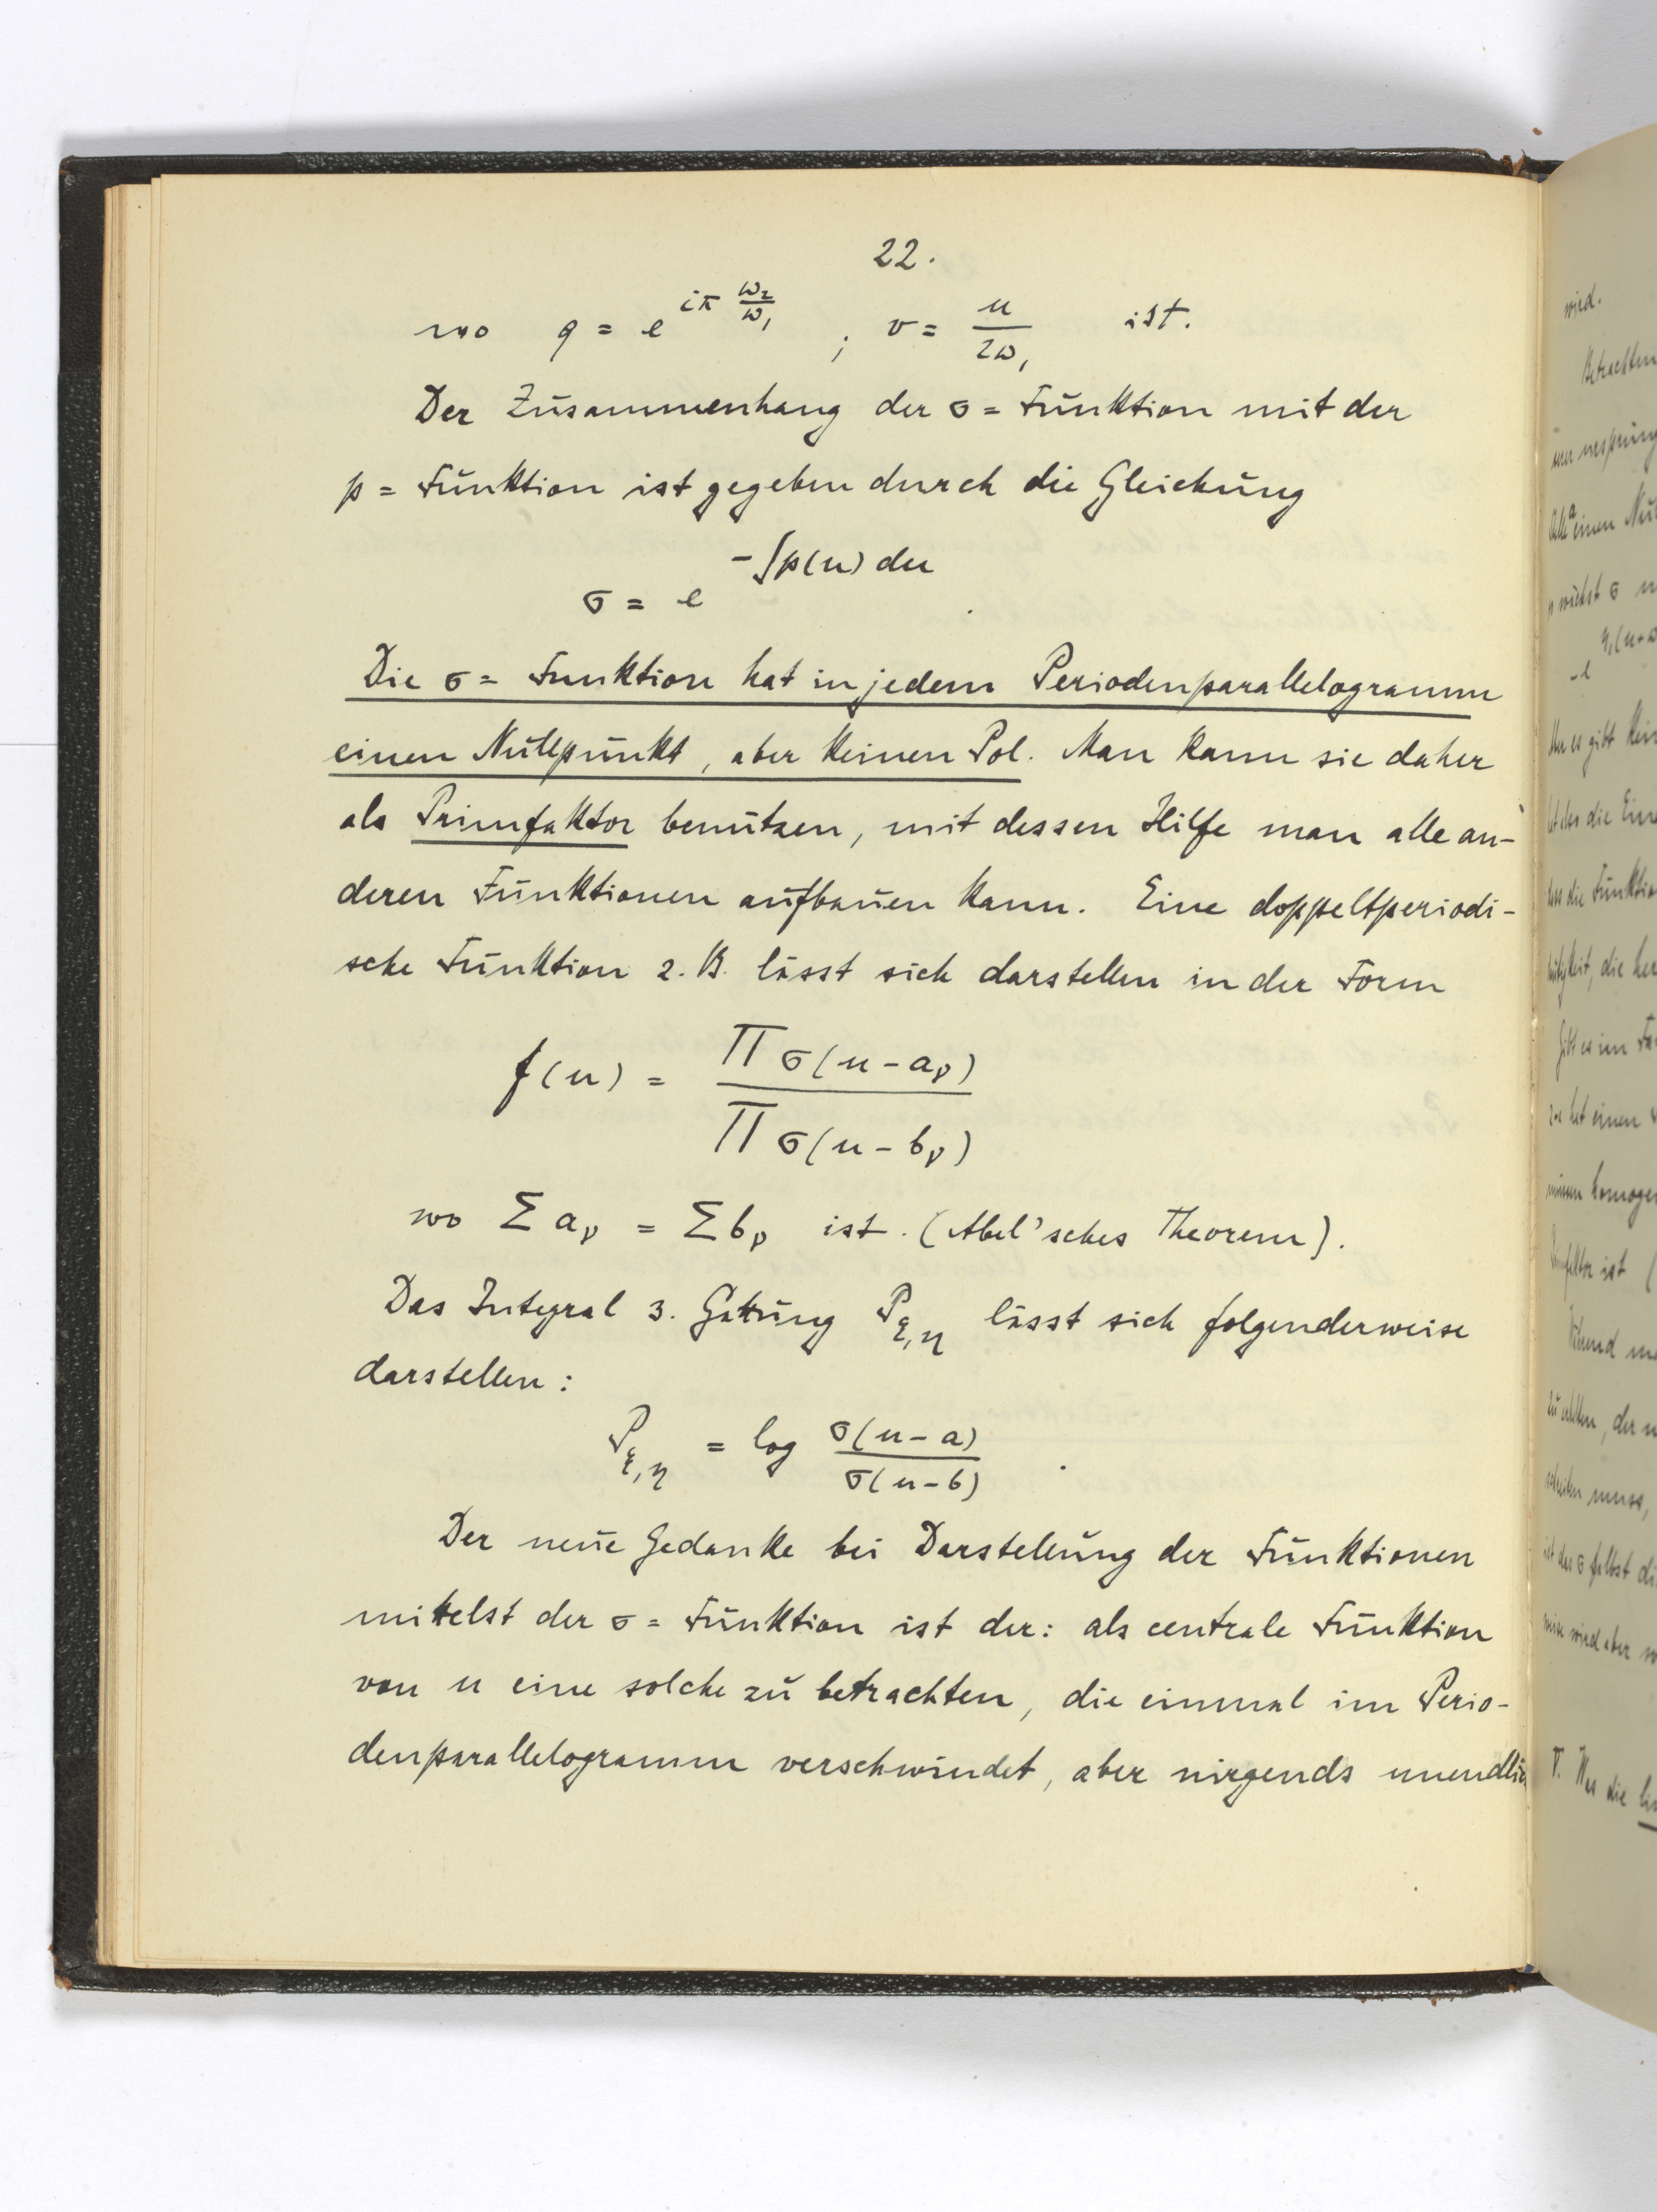 22.
wo q = e^{iπ ω₂/ω₁} ; v = u/2ω₁ ist.
Der Zusammenhang der σ = Funktion mit der
p = Funktion ist gegeben durch die Gleichung
σ = e^{-∫p(u) du}
Die σ = Funktion hat in jedem Periodenparallelogramm
einen Nullpunkt, aber keinen Pol. Man kann sie daher
als Primfaktor benutzen, mit dessen Hilfe man alle an-
deren Funktionen aufbauen kann. Eine doppeltperiodi-
sche Funktion z. B. lässt sich darstellen in der Form
f(u) = Π σ(u - aᵥ) / Π σ(u - bᵥ)
wo Σ aᵥ = Σ bᵥ ist. (Abel'sches Theorem).
Das Integral 3. Gattung P_{ξ,η} lässt sich folgenderweise
darstellen:
P_{ξ,η} = log σ(u - a) / σ(u - b) .
Der neue Gedanke bei Darstellung der Funktionen
mittelst der σ = Funktion ist der: als centrale Funktion
von u eine solche zu betrachten, die einmal im Perio-
denparallelogramm verschwindet, aber nirgends unendlich
wird.
Betrachten
a
einen
η₁(u+ω
-e
es gibt
die
die Funktio
die
es im
einen
ist (
muss,
σ selbst
wird aber
V. Was die